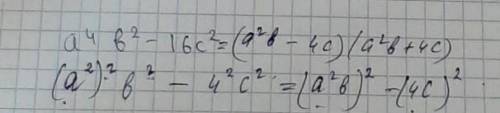 a⁴ в² - 16c² = (a²в - 4c)(a²в + 4c)
(a²)² в² - 4²c² = (a²в)² - (4c)²